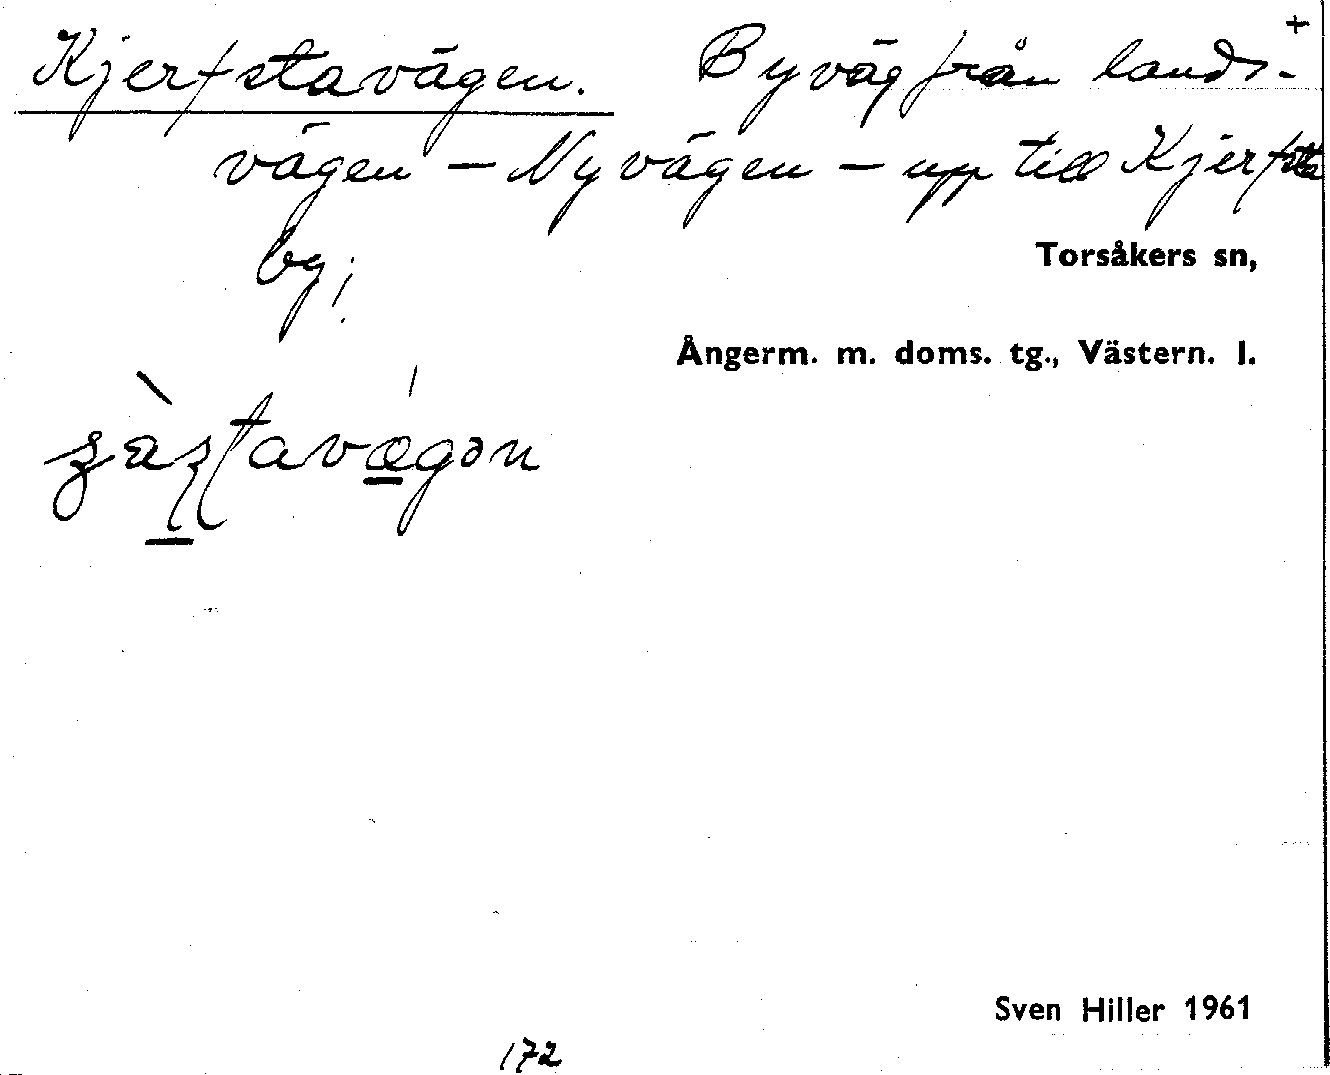 Kjerfstavägen. Byväg från lands- +
vägen – Nyvägen – upp till Kjerfsta
by;
Torsåkers sn,
Ångerm. m. doms. tg., Västern. l.
Sven Hiller 1961
172